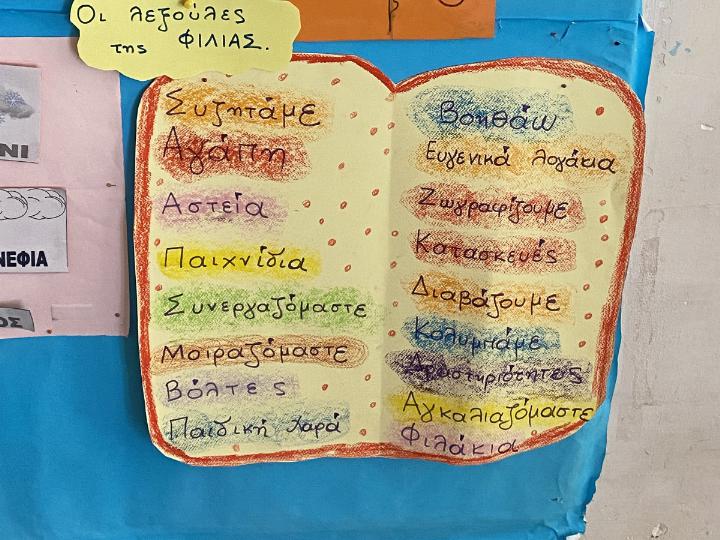 Οι λεξούλες
της ΦΙΛΙΑΣ.
Συζητάμε
Αγάπη
Αστεία
Παιχνίδια
Συνεργαζόμαστε
Μοιραζόμαστε
Βόλτες
Παιδική χαρά
Βοηθάω
Ευγενικά λογάκια
Ζωγραφίζουμε
Κατασκευές
Διαβάζουμε
Κολυμπάμε
Δραστηριότητες
Αγκαλιαζόμαστε
Φιλάκια
ΝΙ
ΝΕΦΙΑ
ΟΣ